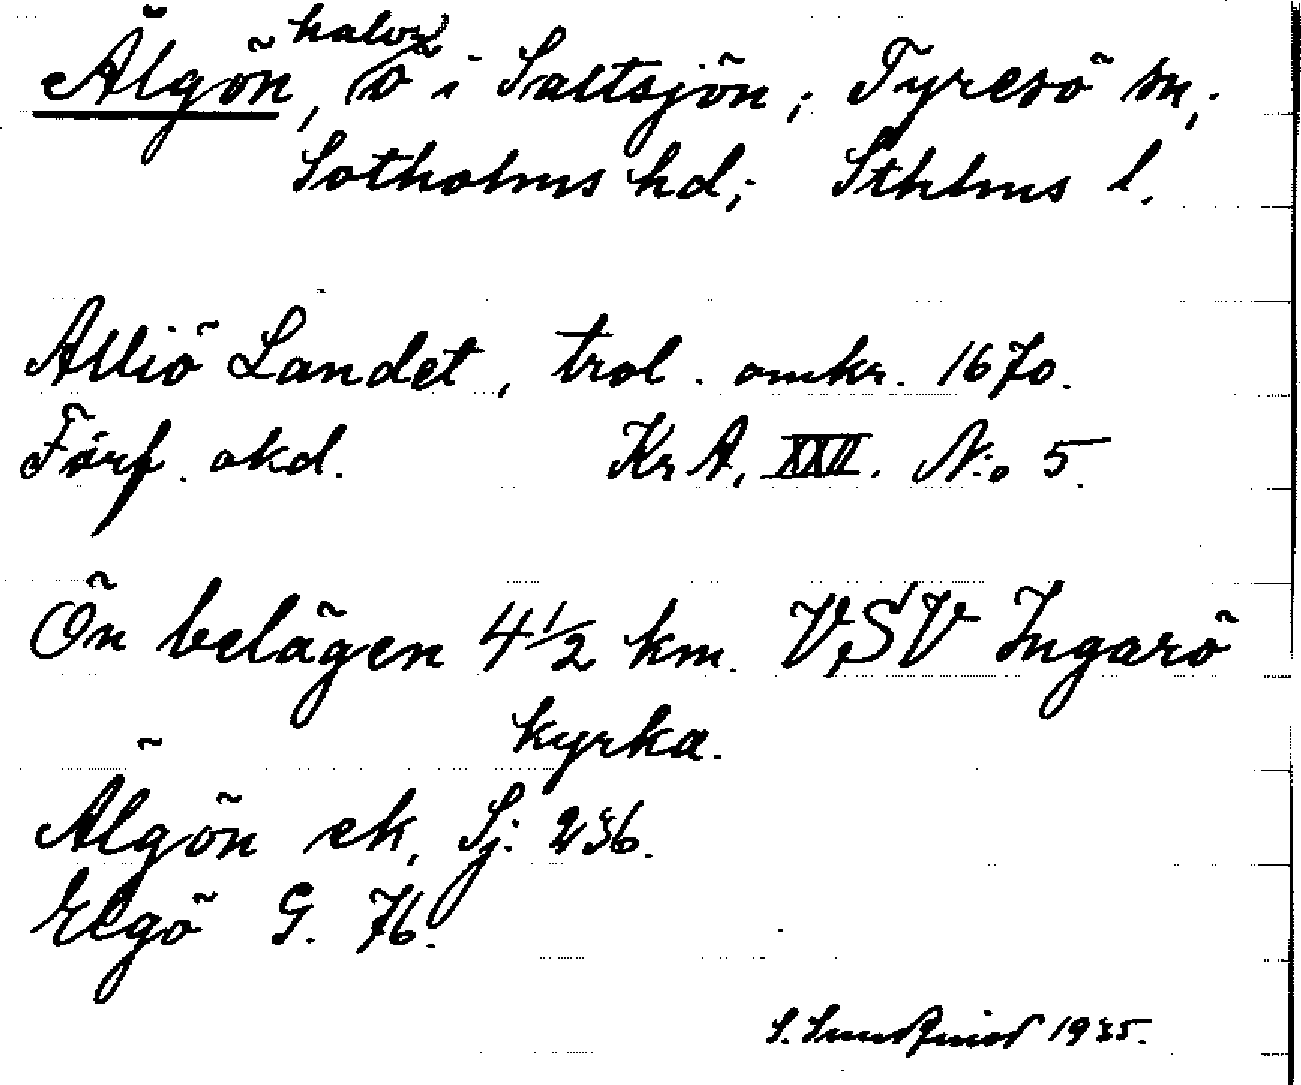 Älgön, halvö i Saltsjön; Tyresö sn,;
Sotholms hd,; Sthlms l.
Alliö Landet, trol. omkr. 1670.
Förf. okd. Kr A, XXII. N:o 5.
Ön belägen 4 1/2 km. VSV Ingarö
kyrka.
Älgön ek, Sj: 236.
Elgö G. 76.
S. 1935.